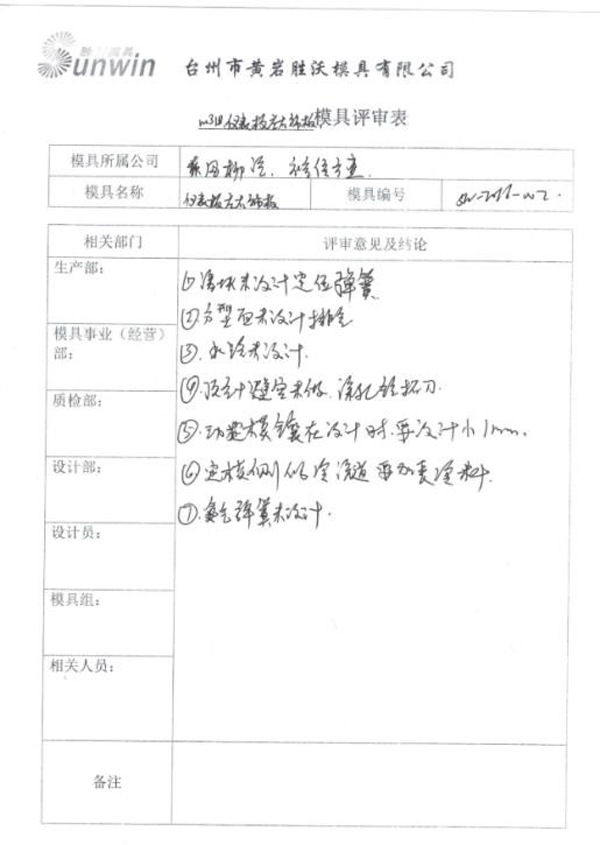 胜沃模具
Sunwin
台州市黄岩胜沃模具有限公司
仪表板左右饰板模具评审表
模具所属公司
模具名称 仪表板左右饰板 模具编号
相关部门 评审意见及结论
生产部:
①滑块未设计定位弹簧
②分型面未设计排气
模具事业（经营）
部:
③.水路未设计.
④顶针避空未做.
质检部:
⑤.动定模镶在设计时.要设计小1mm.
设计部:
⑥定模侧的冷流道要加
⑦.氮气弹簧未设计.
设计员:
模具组:
相关人员:
备注